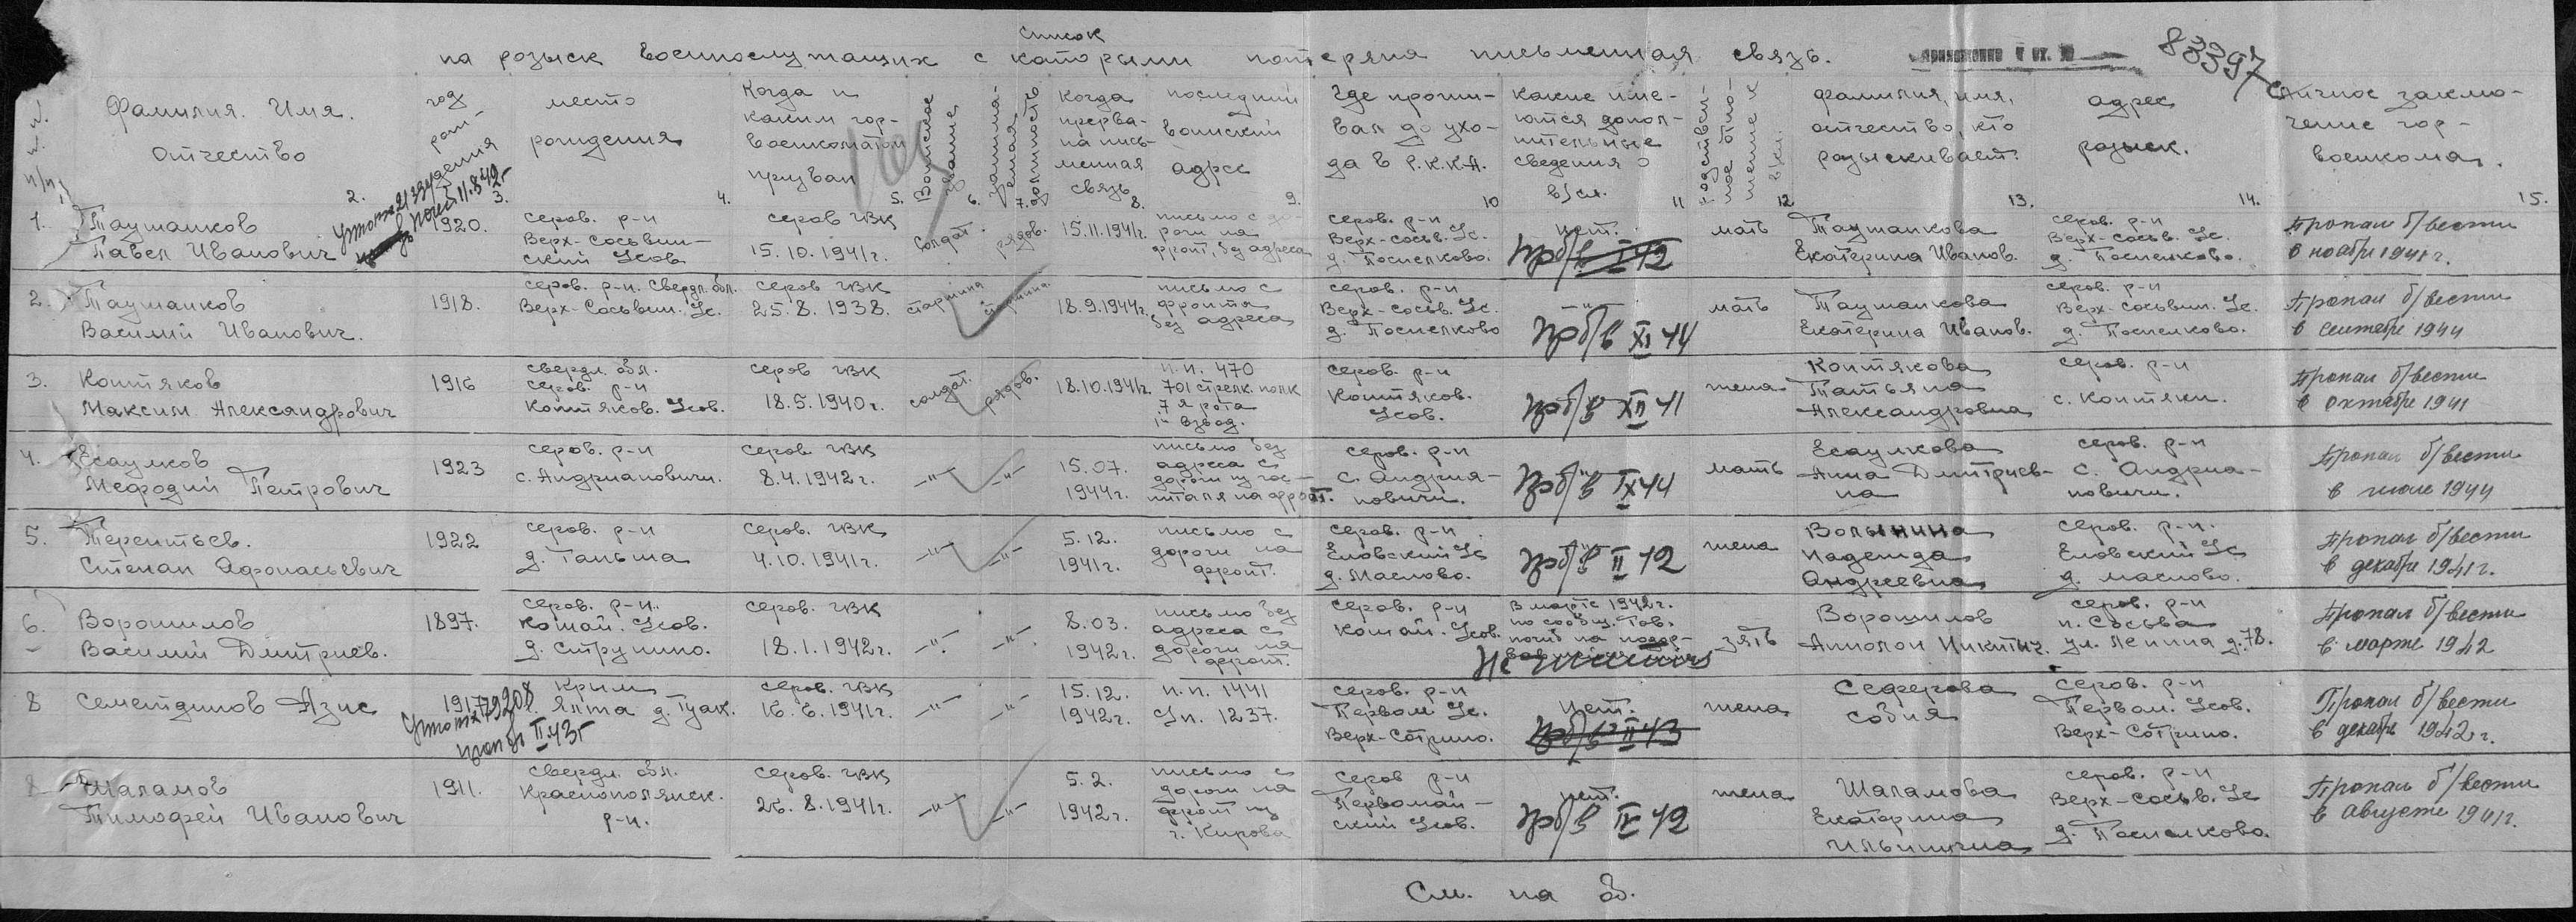 Список
на розыск военнослужащих с которыми потеряна письменная связь.
83397с
№ № п/п
Фамилия. Имя. Отчество
год рождения
место рождения
Когда и каким гор-военкоматом призван
Воинское звание
занимаемая должность
когда прерва-на пись-менная связь
последний воинский адрес
Где прожи-вал до ухо-да в Р.К.К.А.
какие име-ются допол-нительные сведения о в/сл.
родствен-ное отно-шение к в/сл.
фамилия, имя, отчество, кто разыскивает.
адрес розыск.
Личное заклю-чение гор-военкома.
2. 3. 4. 5. 6. 7. 8. 9. 10 11 12 13. 14. 15.
1. Таушанков Павел Иванович
1920.
серов. р-н Верх-Сосьвин-ский Усов
серов ГВК 15.10.1941г.
солдат.
рядов.
15.11.1941г.
письмо с до-роги на фронт, без адреса
серов. р-н Верх-Сосьв. Ус. д. Поспелково.
нет.
Пр б/в I 42
мать
Таушанкова Екатерина Иванов.
серов. р-н Верх-Сосьв. Ус. д. Поспелково.
Пропал б/вести в ноябре 1941г.
2. Таушанков Василий Иванович.
1918.
серов. р-н. Свердл. обл. Верх-Сосьвин. Ус.
серов ГВК 25.8.1938.
старшина
старшина
18.9.1944г.
письмо с фронта без адреса
серов. р-н Верх-Сосьв. Ус. д. Поспелково
—"—
Пр б/в XI 44
мать
Таушанкова Екатерина Иванов.
серов. р-н Верх-Сосьвин. Ус. д. Поспелково.
Пропал б/вести в сентябре 1944
3. Коптяков Максим Александрович
1916
свердл. обл. серов. р-н Коптяков. Усов.
серов ГВК 18.5.1940г.
солдат.
рядов.
18.10.1941г.
п.п. 470 701 стрелк. полк 7 я рота 1й взвод.
серов. р-н Коптяков. Усов.
Пр б/в XII 41
жена
Коптякова Татьяна Александровна
серов. р-н с. Коптяки.
Пропал б/вести в октябре 1941
4. Есаулков Мефодий Петрович
1923
серов. р-н с. Андриановичи.
серов ГВК 8.4.1942г.
—"—
—"—
15.07. 1944г.
письмо без адреса с дороги из гос-питаля на фронт.
серов. р-н с. Андрия-новичи.
—"—
Пр б/в IX 44
мать
Есаулкова Анна Дмитриев-на
серов. р-н с. Андриа-новичи.
Пропал б/вести в июле 1944
5. Терентьев. Степан Афонасьевич
1922
серов. р-н д. Таньша
серов. ГВК 4.10.1941г.
—"—
—"—
5.12. 1941г.
письмо с дороги на фронт.
серов. р-н. Еловский Ус д. Маслово.
—"—
Пр б/в II 42
жена
Волынина Надежда Андреевна
серов. р-н. Еловский Ус д. Маслово.
Пропал б/вести в декабре 1941г.
6. Ворошилов Василий Дмитриев.
1897.
серов. р-н. Кошай. Усов. д. Струнино.
серов. ГВК 18.1.1942г.
—"—
—"—
8.03. 1942г.
письмо без адреса с дороги на фронт.
серов. р-н Кошай. Усов.
В марте 1942г. по сообщ. тов.
зять
Ворошилов Аполон Никитич.
серов. р-н п. Сосьва ул. Ленина д. 78.
Пропал б/вести в марте 1942
8 Семетдинов Азис
1917
Крым Ялта д. Туак.
серов. ГВК 16.6.1941г.
—"—
—"—
15.12. 1942г.
п.п. 1441 Уп. 1237.
серов. р-н Первом Ус. Верх-Сотрино.
нет.
Пр б/в II 43
жена
Сеферова София
серов. р-н Первом. Усов. Верх-Сотрино.
Пропал б/вести в декабре 1942г.
8 Шаламов Тимофей Иванович
1911.
свердл. обл. Краснополянск. р-н.
серов. ГВК 26.8.1941г.
—"—
—"—
5.2. 1942г.
письмо с дороги на фронт из г. Кирова
серов р-н Первомай-ский Усов.
нет.
Пр б/в IV 42
жена
Шаламова Екатерина Ильинична
серов. р-н Верх-Сосьв. Ус д. Поспелково.
Пропал б/вести в августе 1941г.
См. на об.